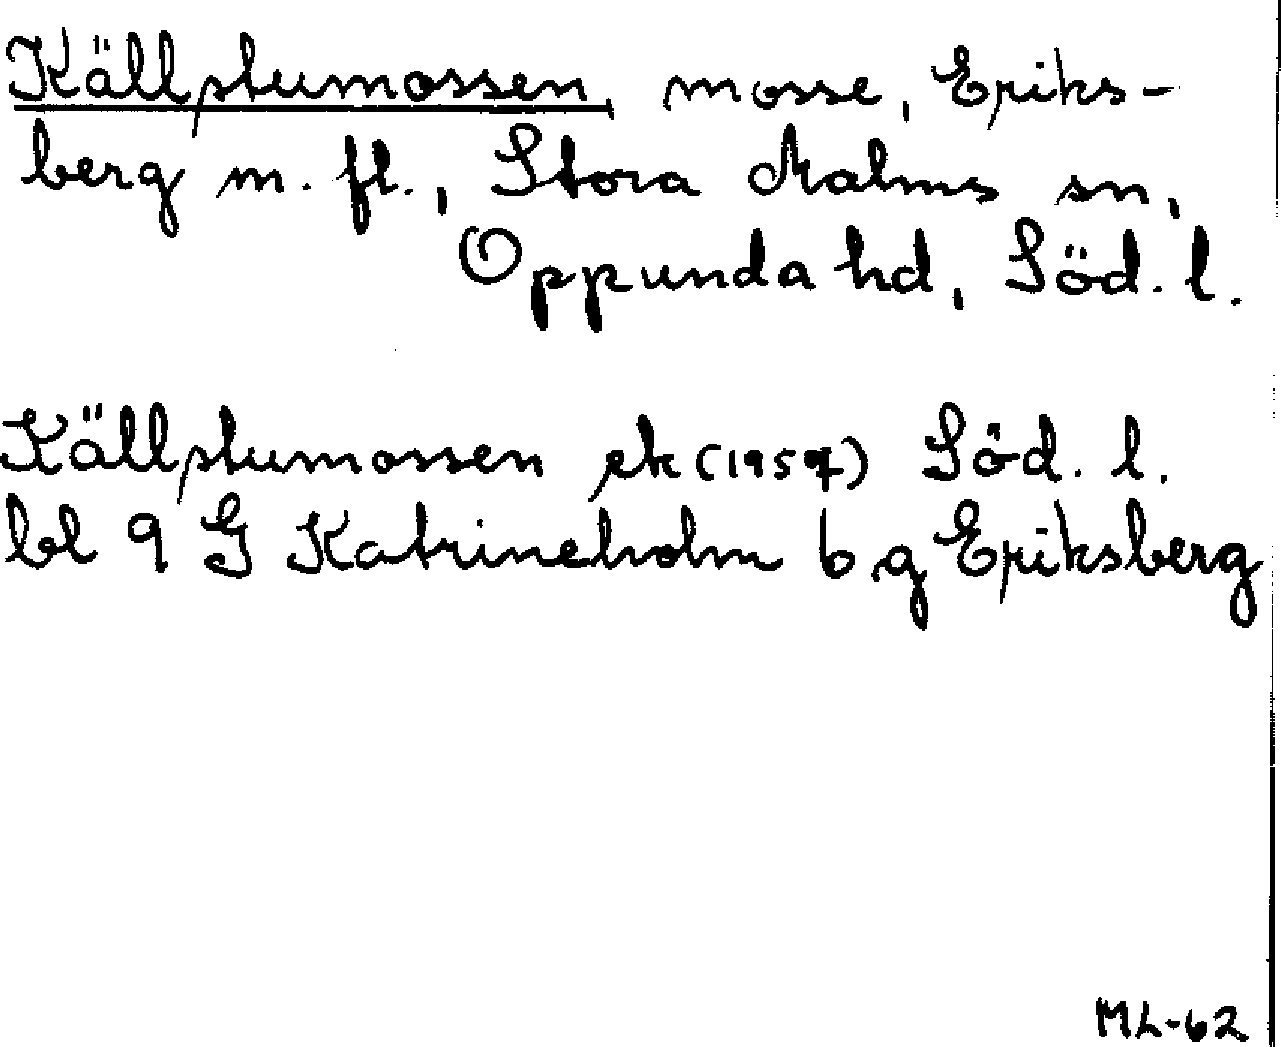 Källstumossen, mosse, Eriks-
berg m. fl., Stora Malms sn,
Oppunda hd, Söd. l.
Källstumossen ek (1957) Söd. l.
bl 9 G Katrineholm b g Eriksberg
ML-62